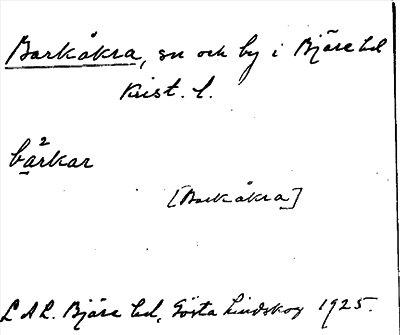 Barkåkra, sn och by i Bjäre hd
Krist. l.
bårkar
[Barkåkra]
L A L. Bjäre hd, Gösta Lindskog 1925.